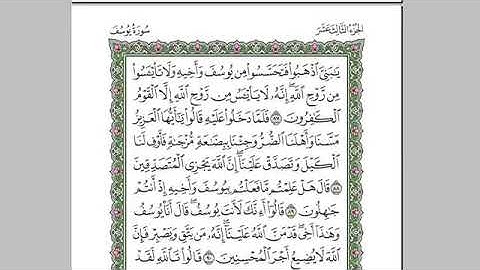 الجزء الثالث عشر
سورة يوسف
يَٰبَنِيَّ ٱذْهَبُوا۟ فَتَحَسَّسُوا۟ مِن يُوسُفَ وَأَخِيهِ وَلَا تَا۟يْـَٔسُوا۟
مِن رَّوْحِ ٱللَّهِ إِنَّهُۥ لَا يَا۟يْـَٔسُ مِن رَّوْحِ ٱللَّهِ إِلَّا ٱلْقَوْمُ
ٱلْكَٰفِرُونَ ٨٧ فَلَمَّا دَخَلُوا۟ عَلَيْهِ قَالُوا۟ يَٰٓأَيُّهَا ٱلْعَزِيزُ
مَسَّنَا وَأَهْلَنَا ٱلضُّرُّ وَجِئْنَا بِبِضَٰعَةٍ مُّزْجَىٰةٍ فَأَوْفِ لَنَا
ٱلْكَيْلَ وَتَصَدَّقْ عَلَيْنَآ إِنَّ ٱللَّهَ يَجْزِى ٱلْمُتَصَدِّقِينَ
٨٨ قَالَ هَلْ عَلِمْتُم مَّا فَعَلْتُم بِيُوسُفَ وَأَخِيهِ إِذْ أَنتُمْ
جَٰهِلُونَ ٨٩ قَالُوٓا۟ أَءِنَّكَ لَأَنتَ يُوسُفُ قَالَ أَنَا۠ يُوسُفُ
وَهَٰذَآ أَخِى قَدْ مَنَّ ٱللَّهُ عَلَيْنَآ إِنَّهُۥ مَن يَتَّقِ وَيَصْبِرْ فَإِنَّ
ٱللَّهَ لَا يُضِيعُ أَجْرَ ٱلْمُحْسِنِينَ ٩٠ قَالُوا۟ تَٱللَّهِ لَقَدْ